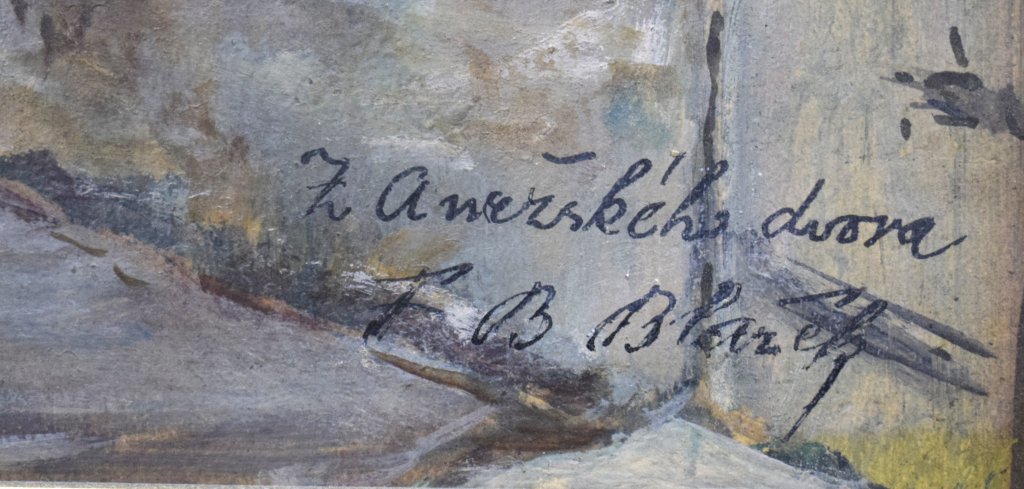 Z Anežského dvora
F B Blažek